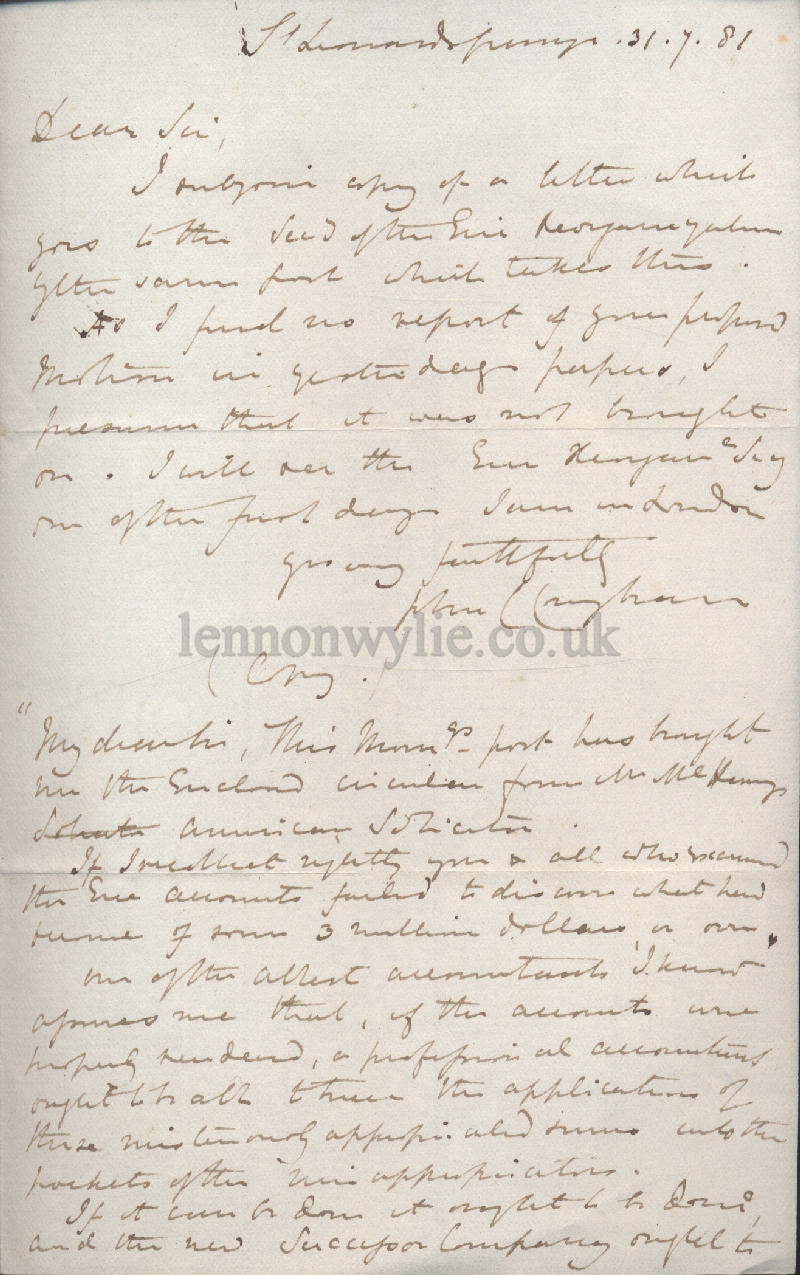 St Leonards 31.7.81
Dear Sir,
I subjoin copy of a letter which
goes to the Secy of the Erie Reorganization
by the same post which takes this.
As I find no report of your proposed
Motion in yesterdays papers, I
presume that it was not brought
on. I will see the Erie Secy
one of the first days I am in London
yrs very faithfully
John
lennonwylie.co.uk
(Copy.)
"My dear Sir, This Morngs post has brought
me the Enclosed circular from Mr McHenrys
American Solicitor.
If I recollect rightly you & all who examined
the Erie accounts failed to discover what had
become of some 3 million dollars, or over.
one of the ablest accountants I know
assures me that, if the accounts were
properly rendered, a professional accountant
ought to be able to trace the application of
these misteriously appropriated sums into the
pockets of the misappropriators.
If it can be done it ought to be done,
and the new Successor Company ought to